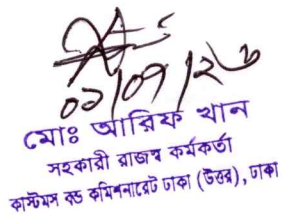 ০১/০৭/২৬
মোঃ আরিফ খান
সহকারী রাজস্ব কর্মকর্তা
কাস্টমস বন্ড কমিশনারেট ঢাকা (উত্তর), ঢাকা